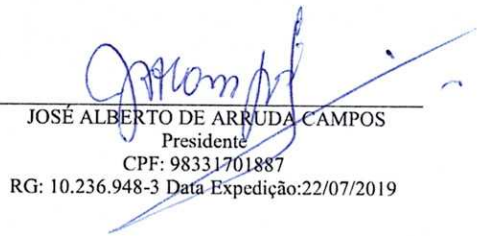 JOSÉ ALBERTO DE ARRUDA CAMPOS
Presidente
CPF: 98331701887
RG: 10.236.948-3 Data Expedição:22/07/2019